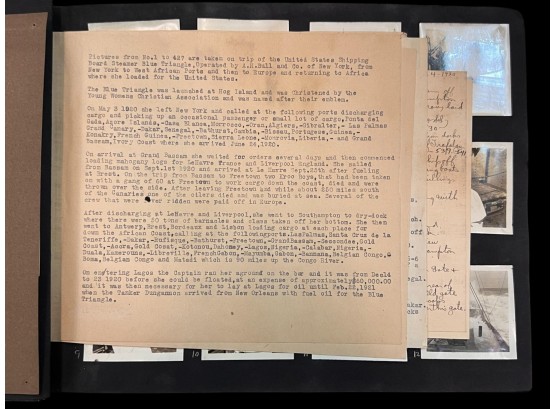 Pictures from No.1 to 427 are taken on trip of the United States Shipping
Board Steamer Blue Triangle, Operated by A.H.Bull and Co. of New York, from
New York to West African Ports and then to Europe and returning to Africa
where she loaded for the United States.
The Blue Triangle was launched at Hog Island and was Christened by the
Young Womens Christian Association and was named after their emblem.
On May 2 1920 she left New York and called at the following ports discharging
cargo and picking up an occasional passenger or small lot of cargo, Ponta del
Gada, Azore Islands,-Casa Blanca, Morrocco,-Oran, Algiers,-Gibraltar,- Las Palmas
Grand Canary,-Dakar, Senegal,-Bathurst, Gambia,-Bissau, Portugese, Guinea,-
Konakry, French Guinea,-Freetown, Sierra Leone,-Monrovia, Liberia,- and Grand
Bassam, Ivory Coast where she arrived June 24, 1920.
On arrival at Grand Bassam she waited for orders several days and then commenced
loading mahogany logs for LeHavre France and Liverpool England. She sailed
from Bassam on Sept.1st 1920 and arrived at Le Havre Sept.22th after fueling
at Brest. On the trip from Bassam to Freetown two Kroo Boys, that had been taken
on with a gang of 60 at Freetown to work cargo down the coast, died and were
thrown over the side. After leaving Freetown and while about 600 miles south
of the Canaries one of the Oilers died and was Buried at sea. Several of the
crew that were fever ridden were paid off in Europe.
After discharging at LeHavre and Liverpool, she went to Southampton to dry-dock
where there were 50 tons of barnacles and grass taken off her bottom. She then
went to Antwerp, Brest, Bordeaux and Lisbon loading cargo at each place for
down the African Coast, calling at the following ports. LasPalmas, Santa Cruz de la
Teneriffe,-Dakar,-Rufisque,-Bathurst,-Freetown,-GrandBassam,-Seccondee, Gold
Coast,-Accra, Gold Coast,-Cotonou, Dahomey,-Lagos, Nigeria,-Calabar, Nigeria,-
Duala, Kamerouns,-Libreville, FrenchGabon,-Mayumba, Gabon,-Banana, Belgian Congo,-
Boma, Belgian Congo and Matadi which is 90 miles up the Congo River.
On entering Lagos the Captain ran her aground on the bar and it was from Dec14
to 22 1920 before she could be floated, at an expense of approximately $60,000.00
and it was then necessary for her to lay at Lagos for oil until Feb.23, 1921
when the Tanker Dungannon arrived from New Orleans with fuel oil for the Blue
Triangle.
9
10
12